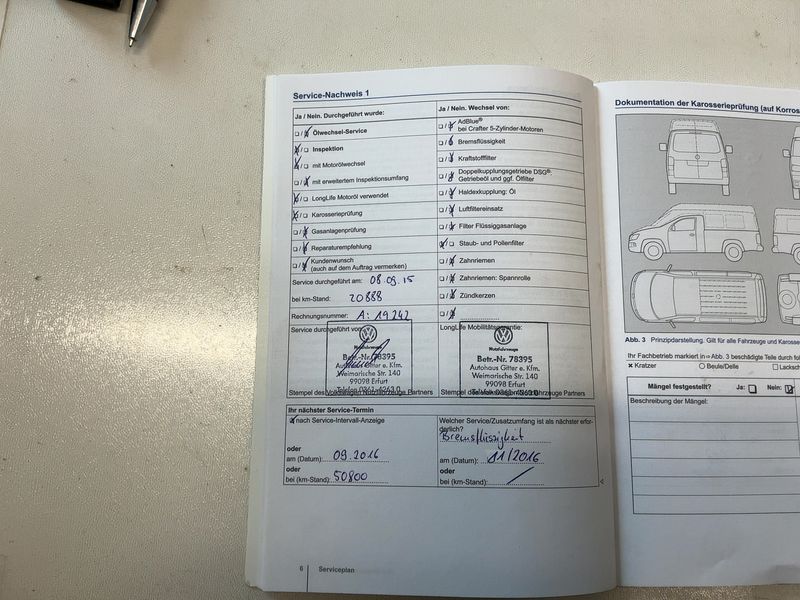 Service-Nachweis 1
Ja / Nein. Durchgeführt wurde:
Ölwechsel-Service
Inspektion
mit Motorölwechsel
mit erweitertem Inspektionsumfang
LongLife Motoröl verwendet
Karosserieprüfung
Gasanlagenprüfung
Reparaturempfehlung
Kundenwunsch
(auch auf dem Auftrag vermerken)
Service durchgeführt am: 08.09.15
bei km-Stand: 20888
Rechnungsnummer: A: 19242
Service durchgeführt von:
Nutzfahrzeuge
Betr.-Nr. 78395
Autohaus Gitter e. Kfm.
Weimarische Str. 140
99098 Erfurt
Telefon 0361-4263 0
Stempel des Volkswagen Nutzfahrzeuge Partners
Ja / Nein. Wechsel von:
AdBlue®
bei Crafter 5-Zylinder-Motoren
Bremsflüssigkeit
Kraftstofffilter
Doppelkupplungsgetriebe DSG®:
Getriebeöl und ggf. Ölfilter
Haldexkupplung: Öl
Luftfiltereinsatz
Filter Flüssiggasanlage
Staub- und Pollenfilter
Zahnriemen
Zahnriemen: Spannrolle
Zündkerzen
LongLife Mobilitätsgarantie:
Nutzfahrzeuge
Betr.-Nr. 78395
Autohaus Gitter e. Kfm.
Weimarische Str. 140
99098 Erfurt
Telefon 0361-4263 0
Stempel des Volkswagen Nutzfahrzeuge Partners
Ihr nächster Service-Termin
nach Service-Intervall-Anzeige
oder
am (Datum): 09.2016
oder
bei (km-Stand): 50800
Welcher Service/Zusatzumfang ist als nächster erfor-
derlich?
Bremsflüssigkeit
am (Datum): 11/2016
oder
bei (km-Stand): /
6 Serviceplan
Dokumentation der Karosserieprüfung (auf
Abb. 3 Prinzipdarstellung. Gilt für alle Fahrzeuge und
Ihr Fachbetrieb markiert in ⇒ Abb. 3 beschädigte Teile durch
× Kratzer ○ Beule/Delle
Mängel festgestellt? Ja: Nein:
Beschreibung der Mängel: